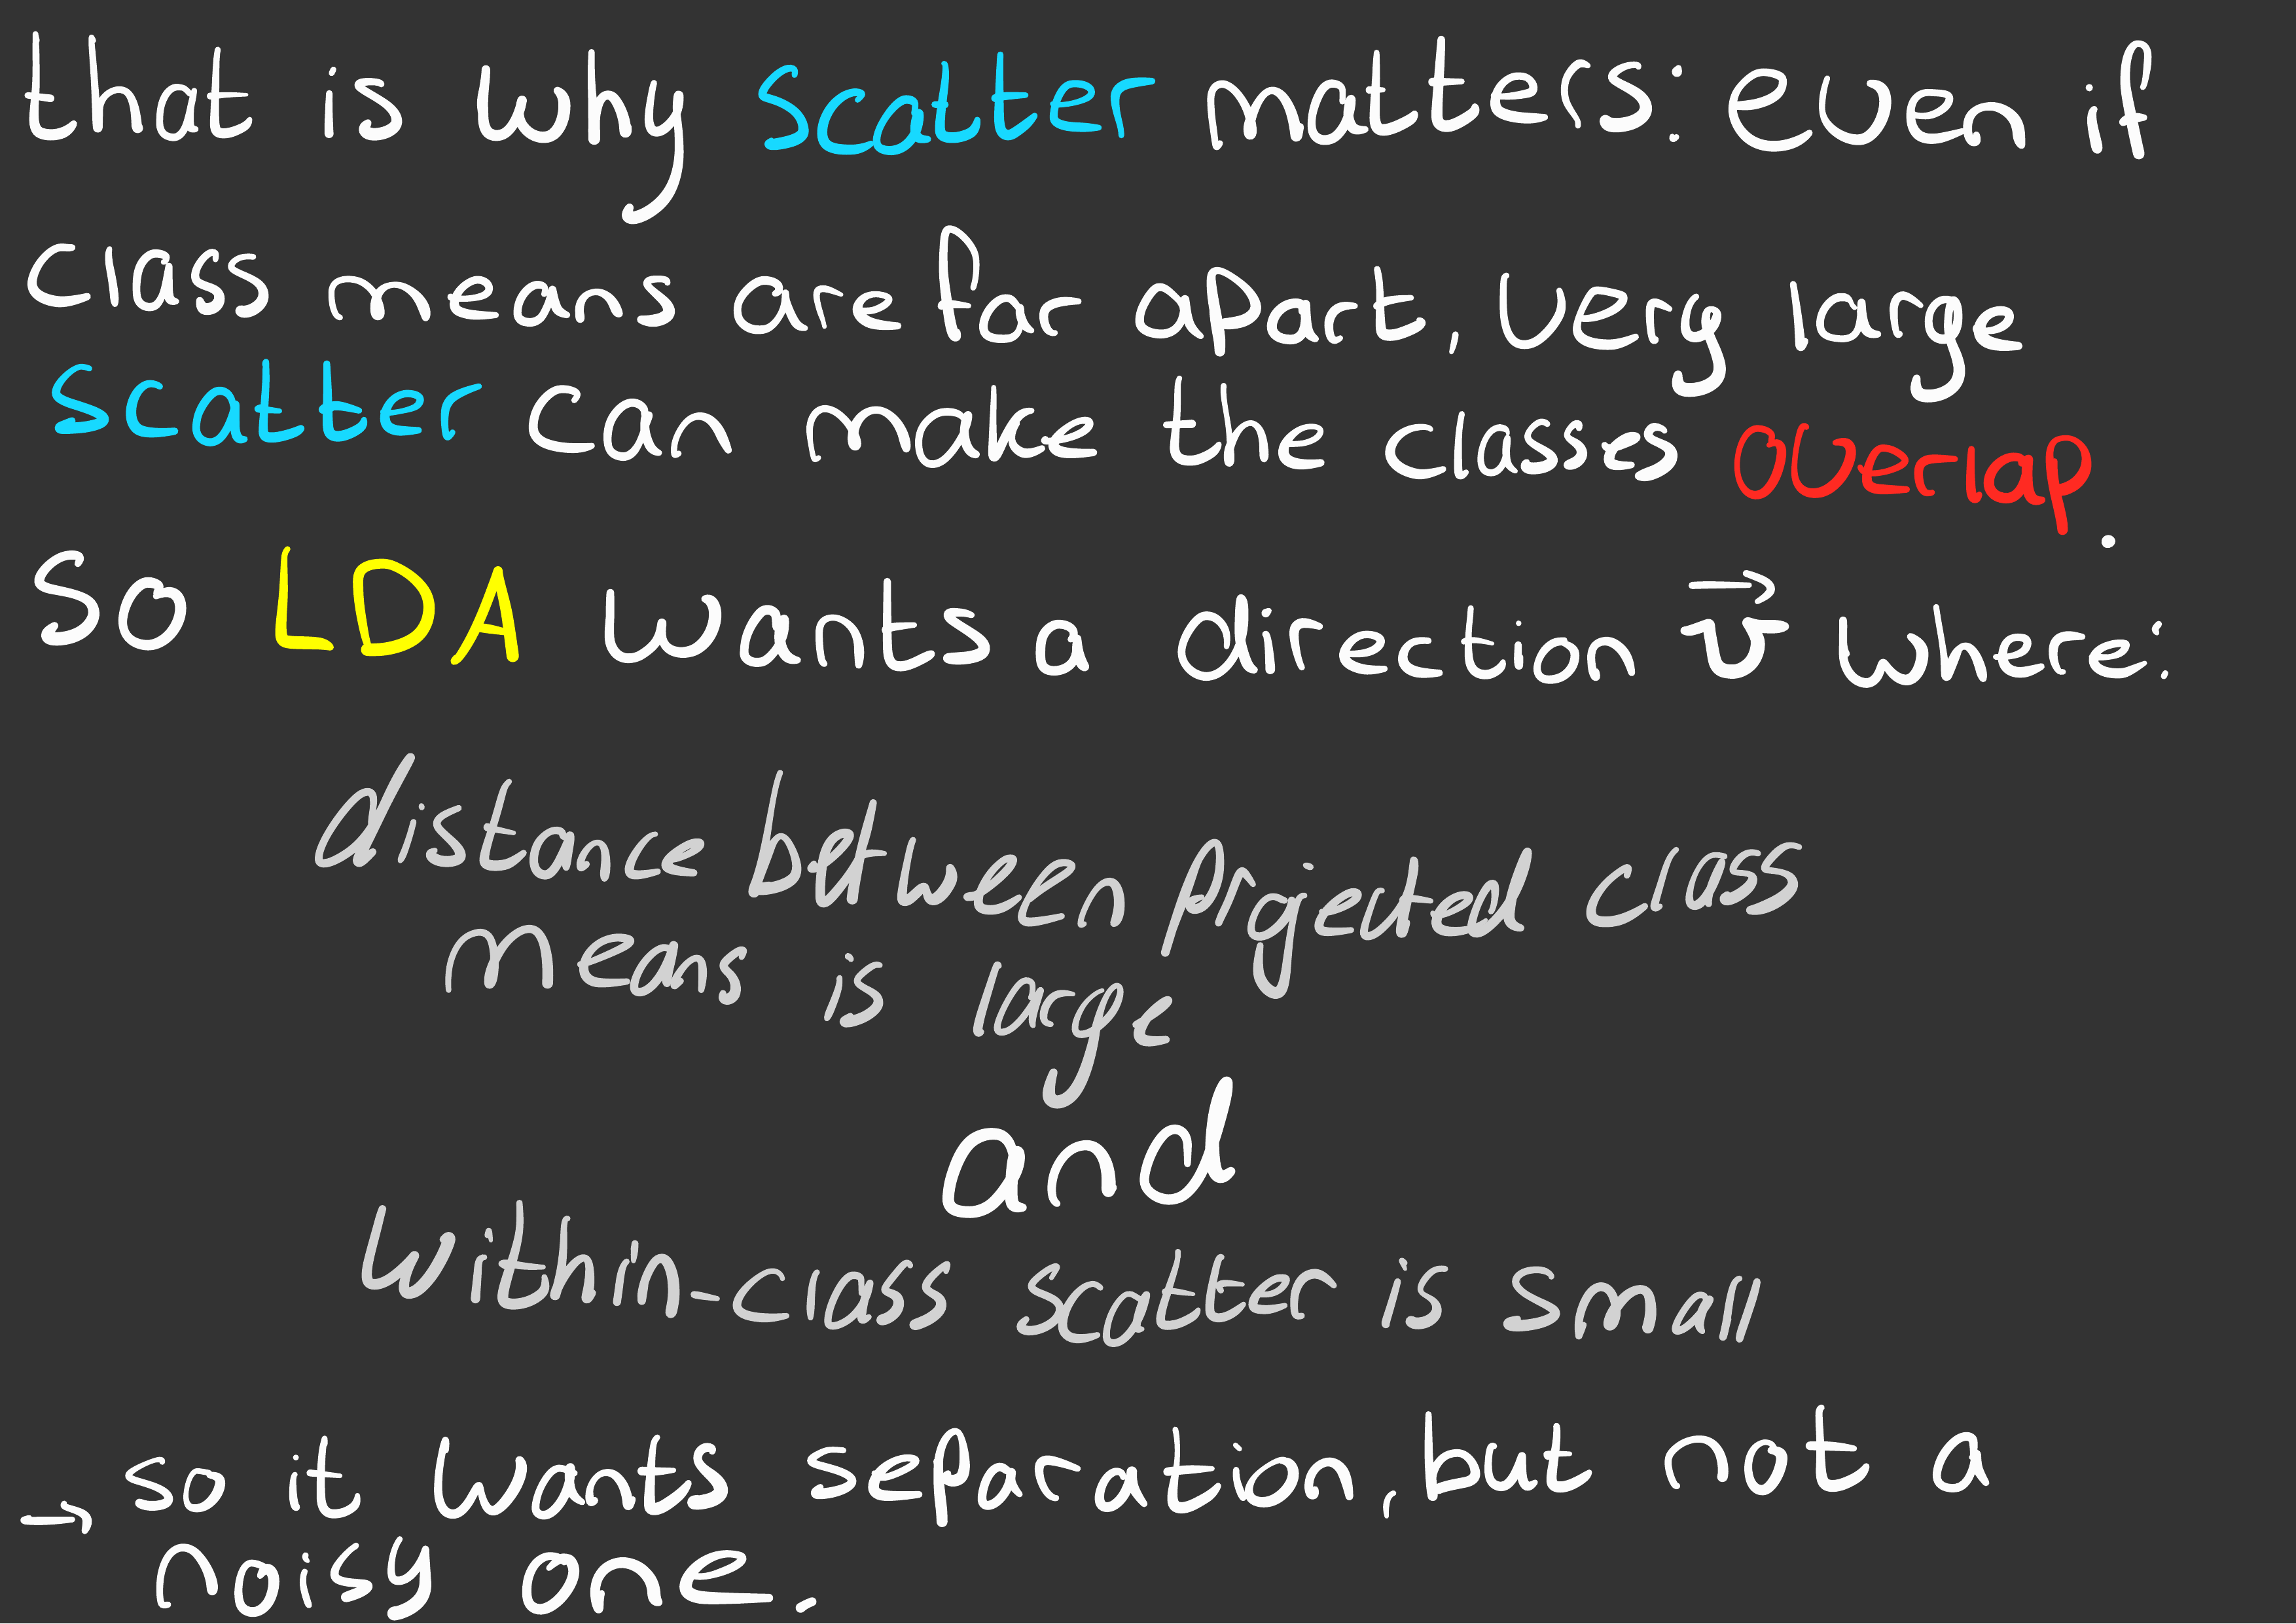 that is why scatter matters: even if
class means are far apart, very large
scatter can make the classes overlap.
So LDA wants a direction v⃗ where:
distance between projected class
means is large
and
within-class scatter is small
→ so it wants separation, but not a
noisy one.